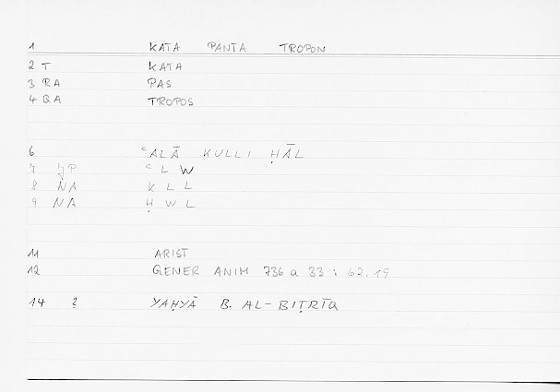 1 KATA PANTA TROPON
2 T KATA
3 RA PAS
4 QA TROPOS
6 ʿALĀ KULLI ḤĀL
7 JP ʿL W
8 NA K L L
9 NA Ḥ W L
11 ARIST
12 GENER ANIM 736 a 33 : 62.19
14 2 YAḤYĀ B. AL-BIṬRĪQ